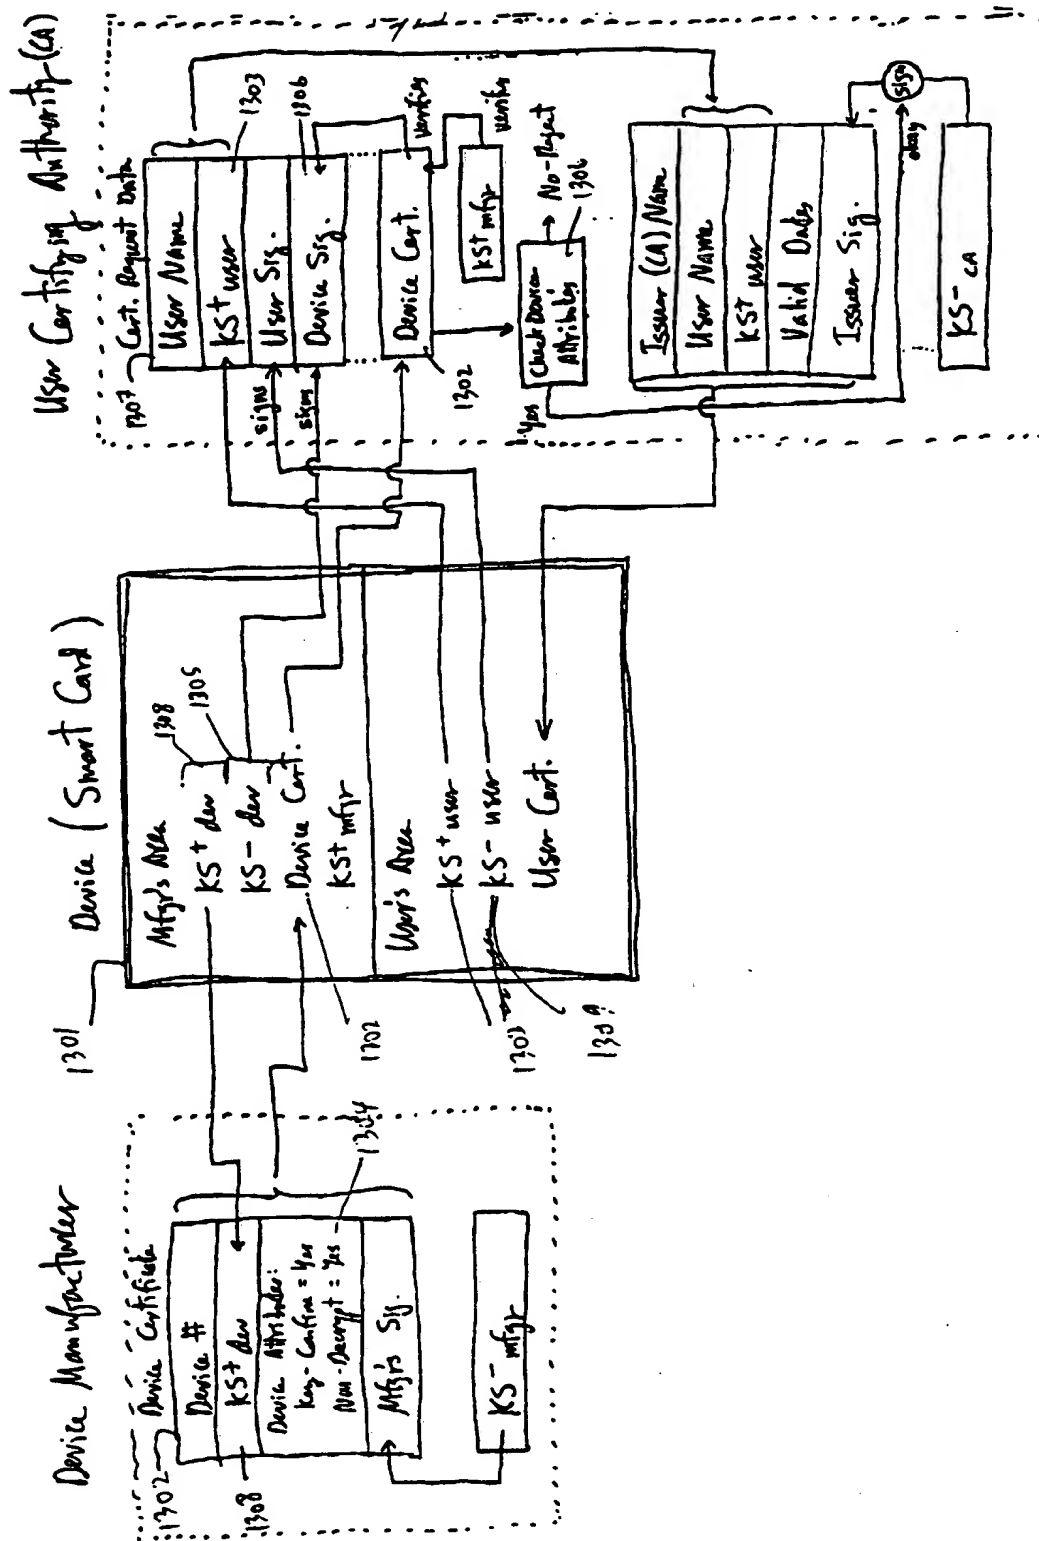 Device Manufacturer
Device Certificate
1302
Device #
KS+ dev
1308
Device Attributes:
Key-Confine = Yes
Non-Decrypt = Yes
1304
Mfgr's Sig.
KS- mfgr
Device (Smart Card)
1301
Mfgr's Area
KS+ dev
KS- dev
Device Cert.
KS+ mfgr
1308
1305
1302
User's Area
KS+ user
KS- user
User Cert.
1303
1309
User Certifying Authority (CA)
1307
Cert. Request Data
User Name
KS+ user
User Sig.
Device Sig.
1303
1306
signs
signs
Device Cert.
1302
verifies
KS+ mfgr
verifies
Check Device Attributes
No-Reject
1306
Yes
Issuer (CA) Name
User Name
KS+ user
Valid Dates
Issuer Sig.
sign
okay
KS- CA